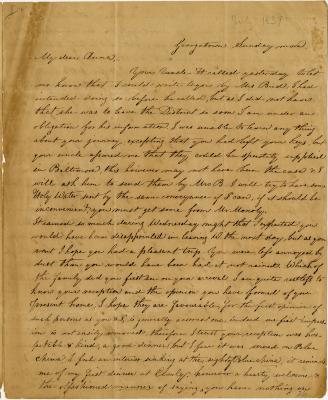 July 1839
Georgetown Sunday morn
My dear Anna,
Your Uncle called yesterday to let
me know that I could write to you by Mrs Bird. I had
intended doing so before he called, but as I did not know
that she was to leave the District so soon I am under an
obligation for his information. I was unable to learn any thing
about your journey, excepting that you had left your keys, but
your uncle assured me that they could be speedily supplied
in Baltimore, this however may not have been the case & I
will ask him to send them by Mrs B. I will try to have some
Holy Water sent by the same conveyance if I can, if it should be
inconvenient you must get some from Mr
It rained so much during Wednesday night that I expected you
would have been disappointed in leaving W. the next day, but as you
went I hope you had a pleasant trip. You were less annoyed by
dust than you would have been had it not rained. Which of
the family did you first see on your arrival. I am quite restless to
know your reception and the opinion you have formed of your
present home, I hope they are favourable, for the first opinion of
such persons as you & I is generally a correct one, indeed one first imbibed
is not easily removed therefore I trust your reception was hos-
pitable & kind, a good dinner, but I fear it was served on Blue
China I feel an interior sinking at the sight of blue china it reminds
me of my first dinner at however a hearty welcome &
the old fashioned manner of saying, you have nothing my